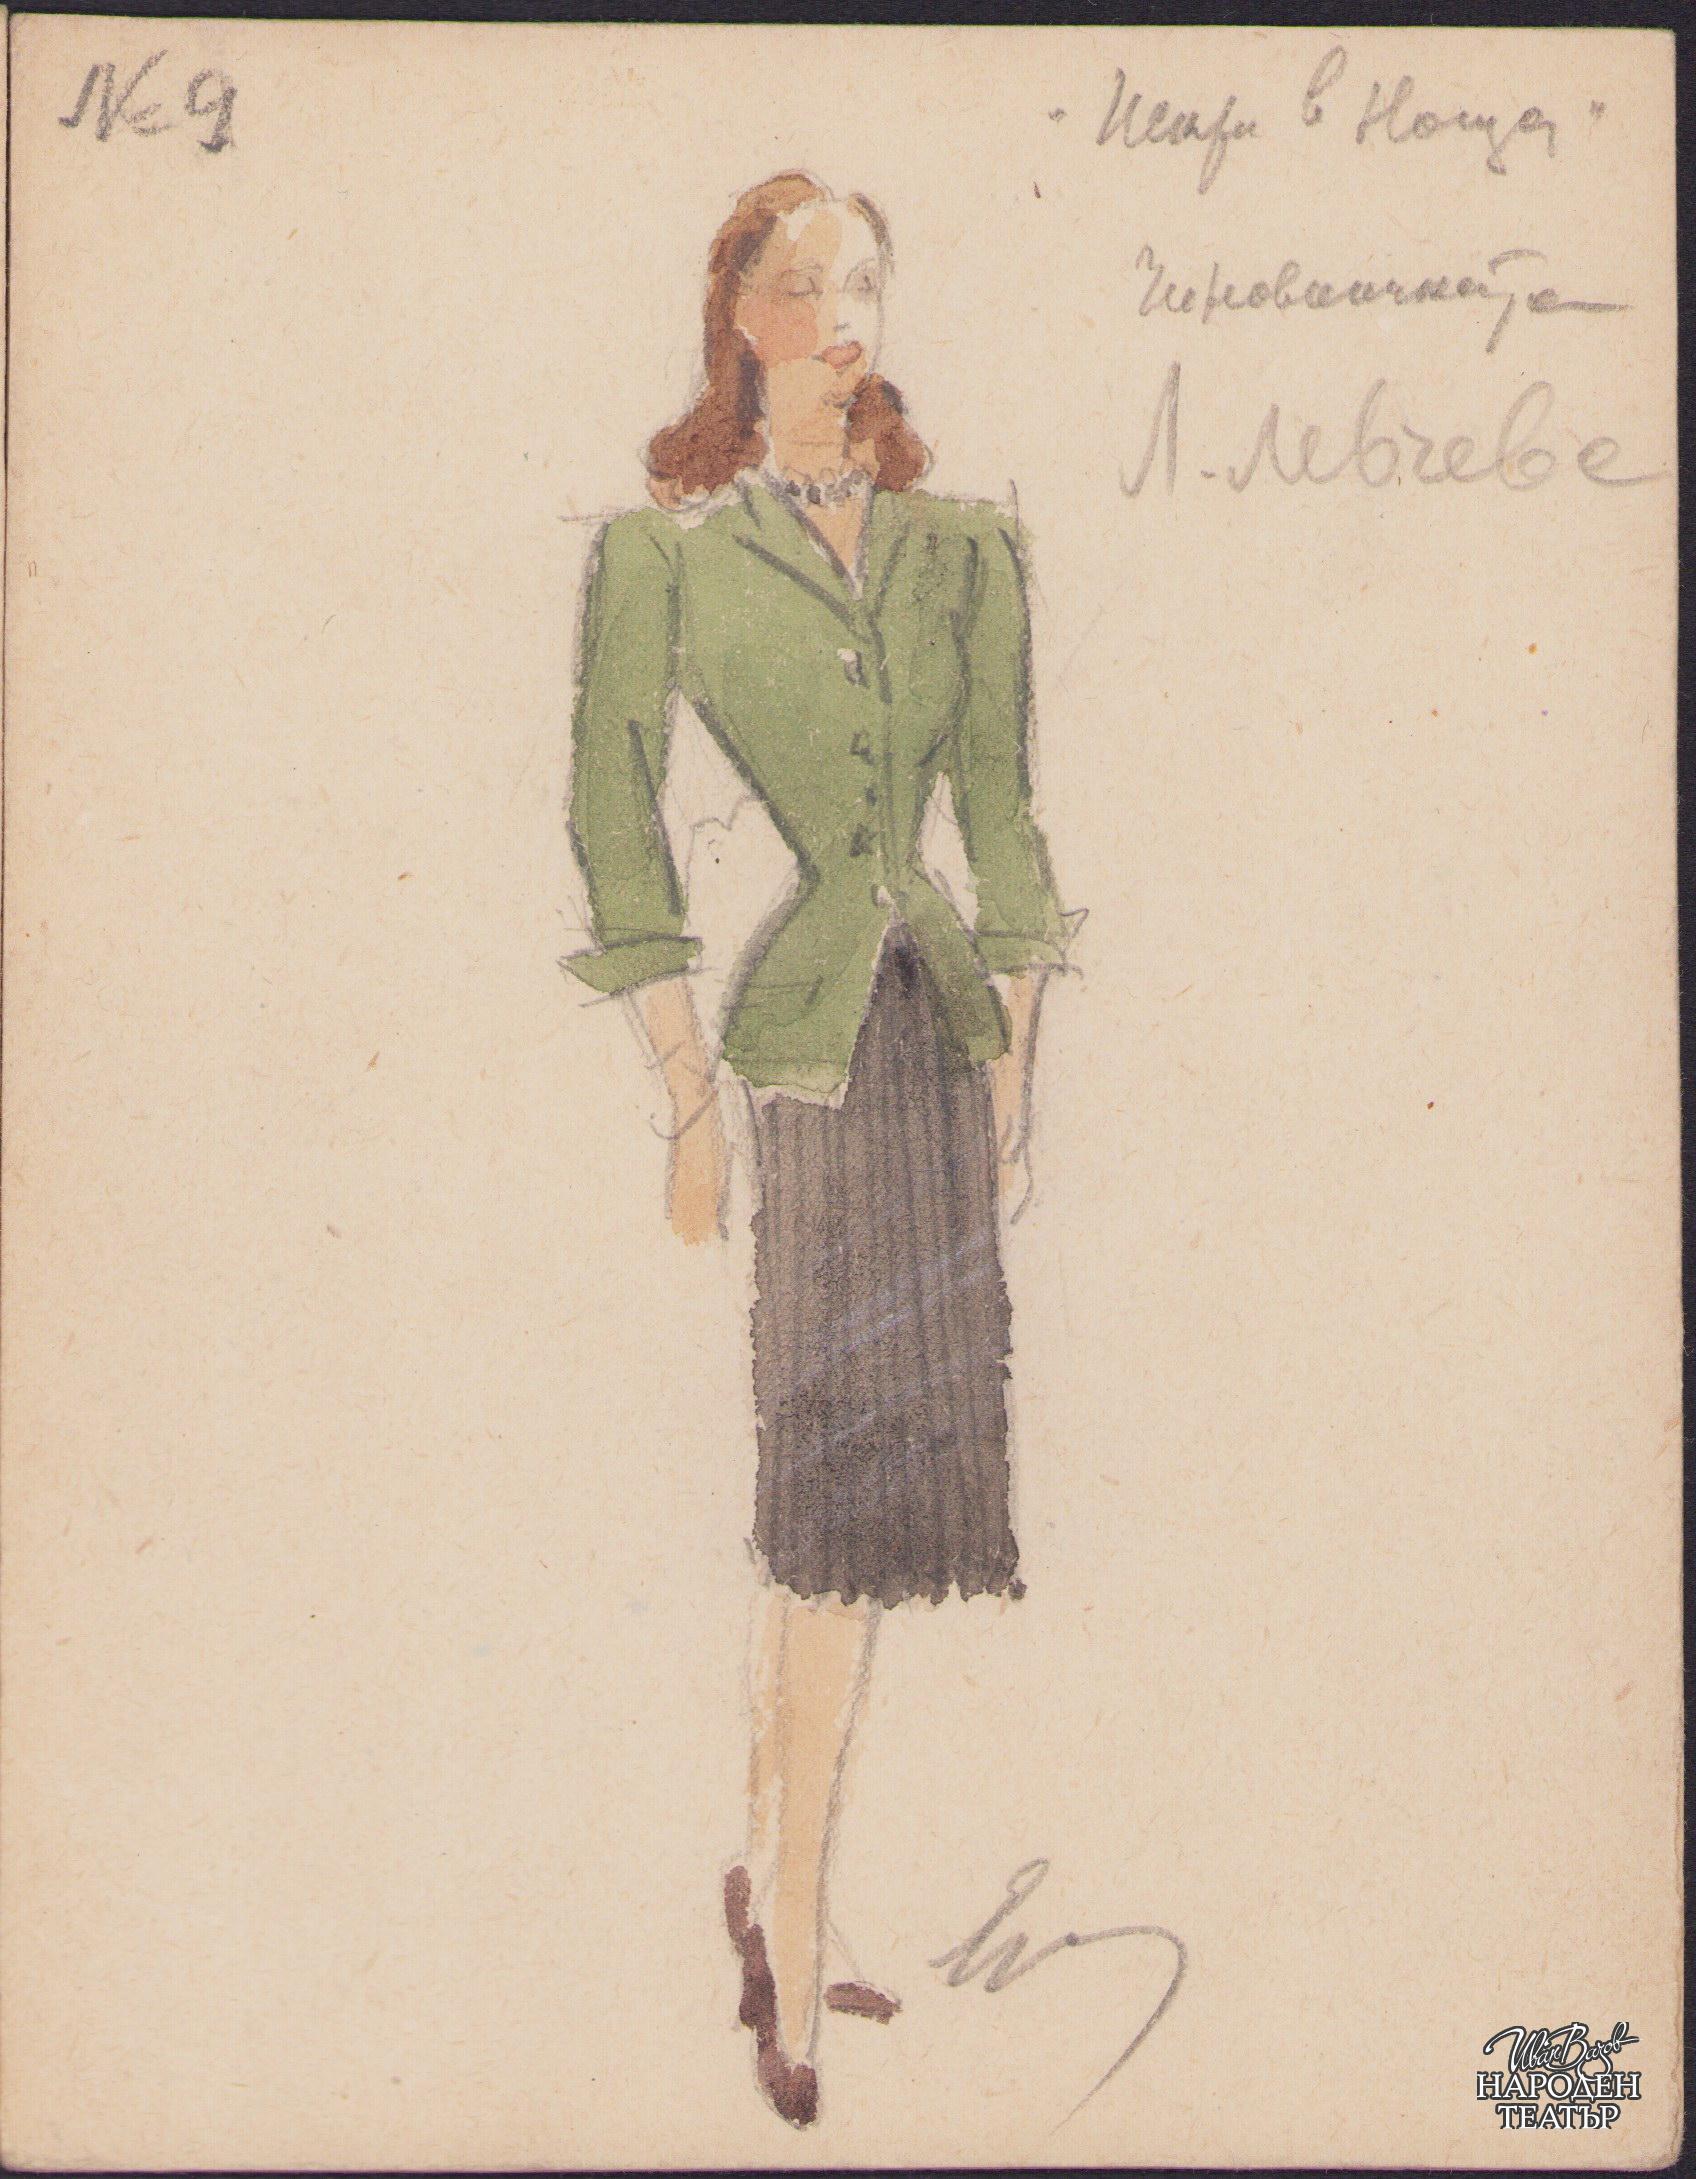 № 9
"Искри в Нощта"
Чиновничката
Л. Левчева
Иван Вазов
НАРОДЕН
ТЕАТЪР